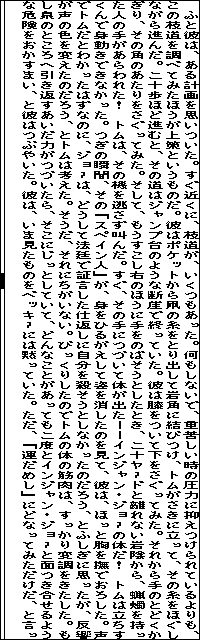 ふと彼は、ある計画を思いついた。すぐ近くに、枝道が、いくつもあった。何もしないで、重苦しい時の圧力に抑えつけられているよりも、
この枝道を調べてみたほうが上策というものだ。彼はポケットから凧の糸をとり出して岩角に結びつけ、トムがさきに立って、その糸をほぐし
ながら進んだ。二十歩ほど進むと、その道はジャンプ台のような断崖で終っていた。彼は膝をついて下をさぐってみた。それから手のとどくか
ぎり、その角のあたりをさぐってみた。そして、もうすこし右のほうに手をのばそうとしたとき、二十ヤードと離れない岩陰から、蝋燭を持っ
た人の手があらわれた！　トムは、その機を逃さず叫んだ。すぐ、その手につづいて体が出た――インジャン・ジョーの体だ！　トムは立ちす
くんで身動きできなかった。つぎの瞬間、その「スペイン人」が、身をひるがえして姿を消したのを見て、彼は、ほっと胸を撫でおろした。声
でトムだとわかったはずなのに、ジョーは、どうして法廷で証言した仕返しに自分を殺そうとしなかったのだろう、とふしぎに思ったが、反響
が声の色を変えたのだろう、とトムは考えた。そうだ、それにちがいない。びっくりしたのでトムの体の筋肉は、すっかり変調をきたした。も
し泉のところへ引き返すあいだ力がつづいたら、そこにじっとしていて、どんなことがあっても二度とインジャン・ジョーと面つき合せるよう
な危険をおかすまい、と彼はつぶやいた。彼は、いま見たものをベッキーには黙っていた。ただ、「運だめし」にどなってみただけだ、と言っ